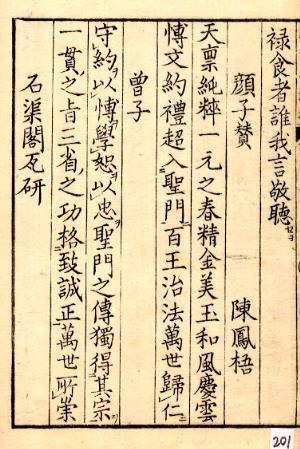 祿食者誰我言敬聽セヨ
顏子贊 陳鳳梧
天稟純粹一元之春精金美玉和風慶雲
博文約禮超入聖門ニ百王治法萬世歸仁ニ
曾子
守約ヲ以博學ヲ恕以忠ヲ聖門之傳獨得其宗ヲ
一貫之旨三省之功格致誠正ニ萬世所崇
石渠閣瓦研
201